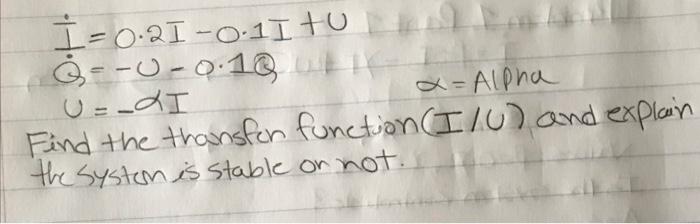 İ = 0.2I - 0.1I + U
Q̇ = -U - 0.1Q
α = Alpha
U = -αI
Find the thansfer function (I/U) and explain
the system is stable or not.